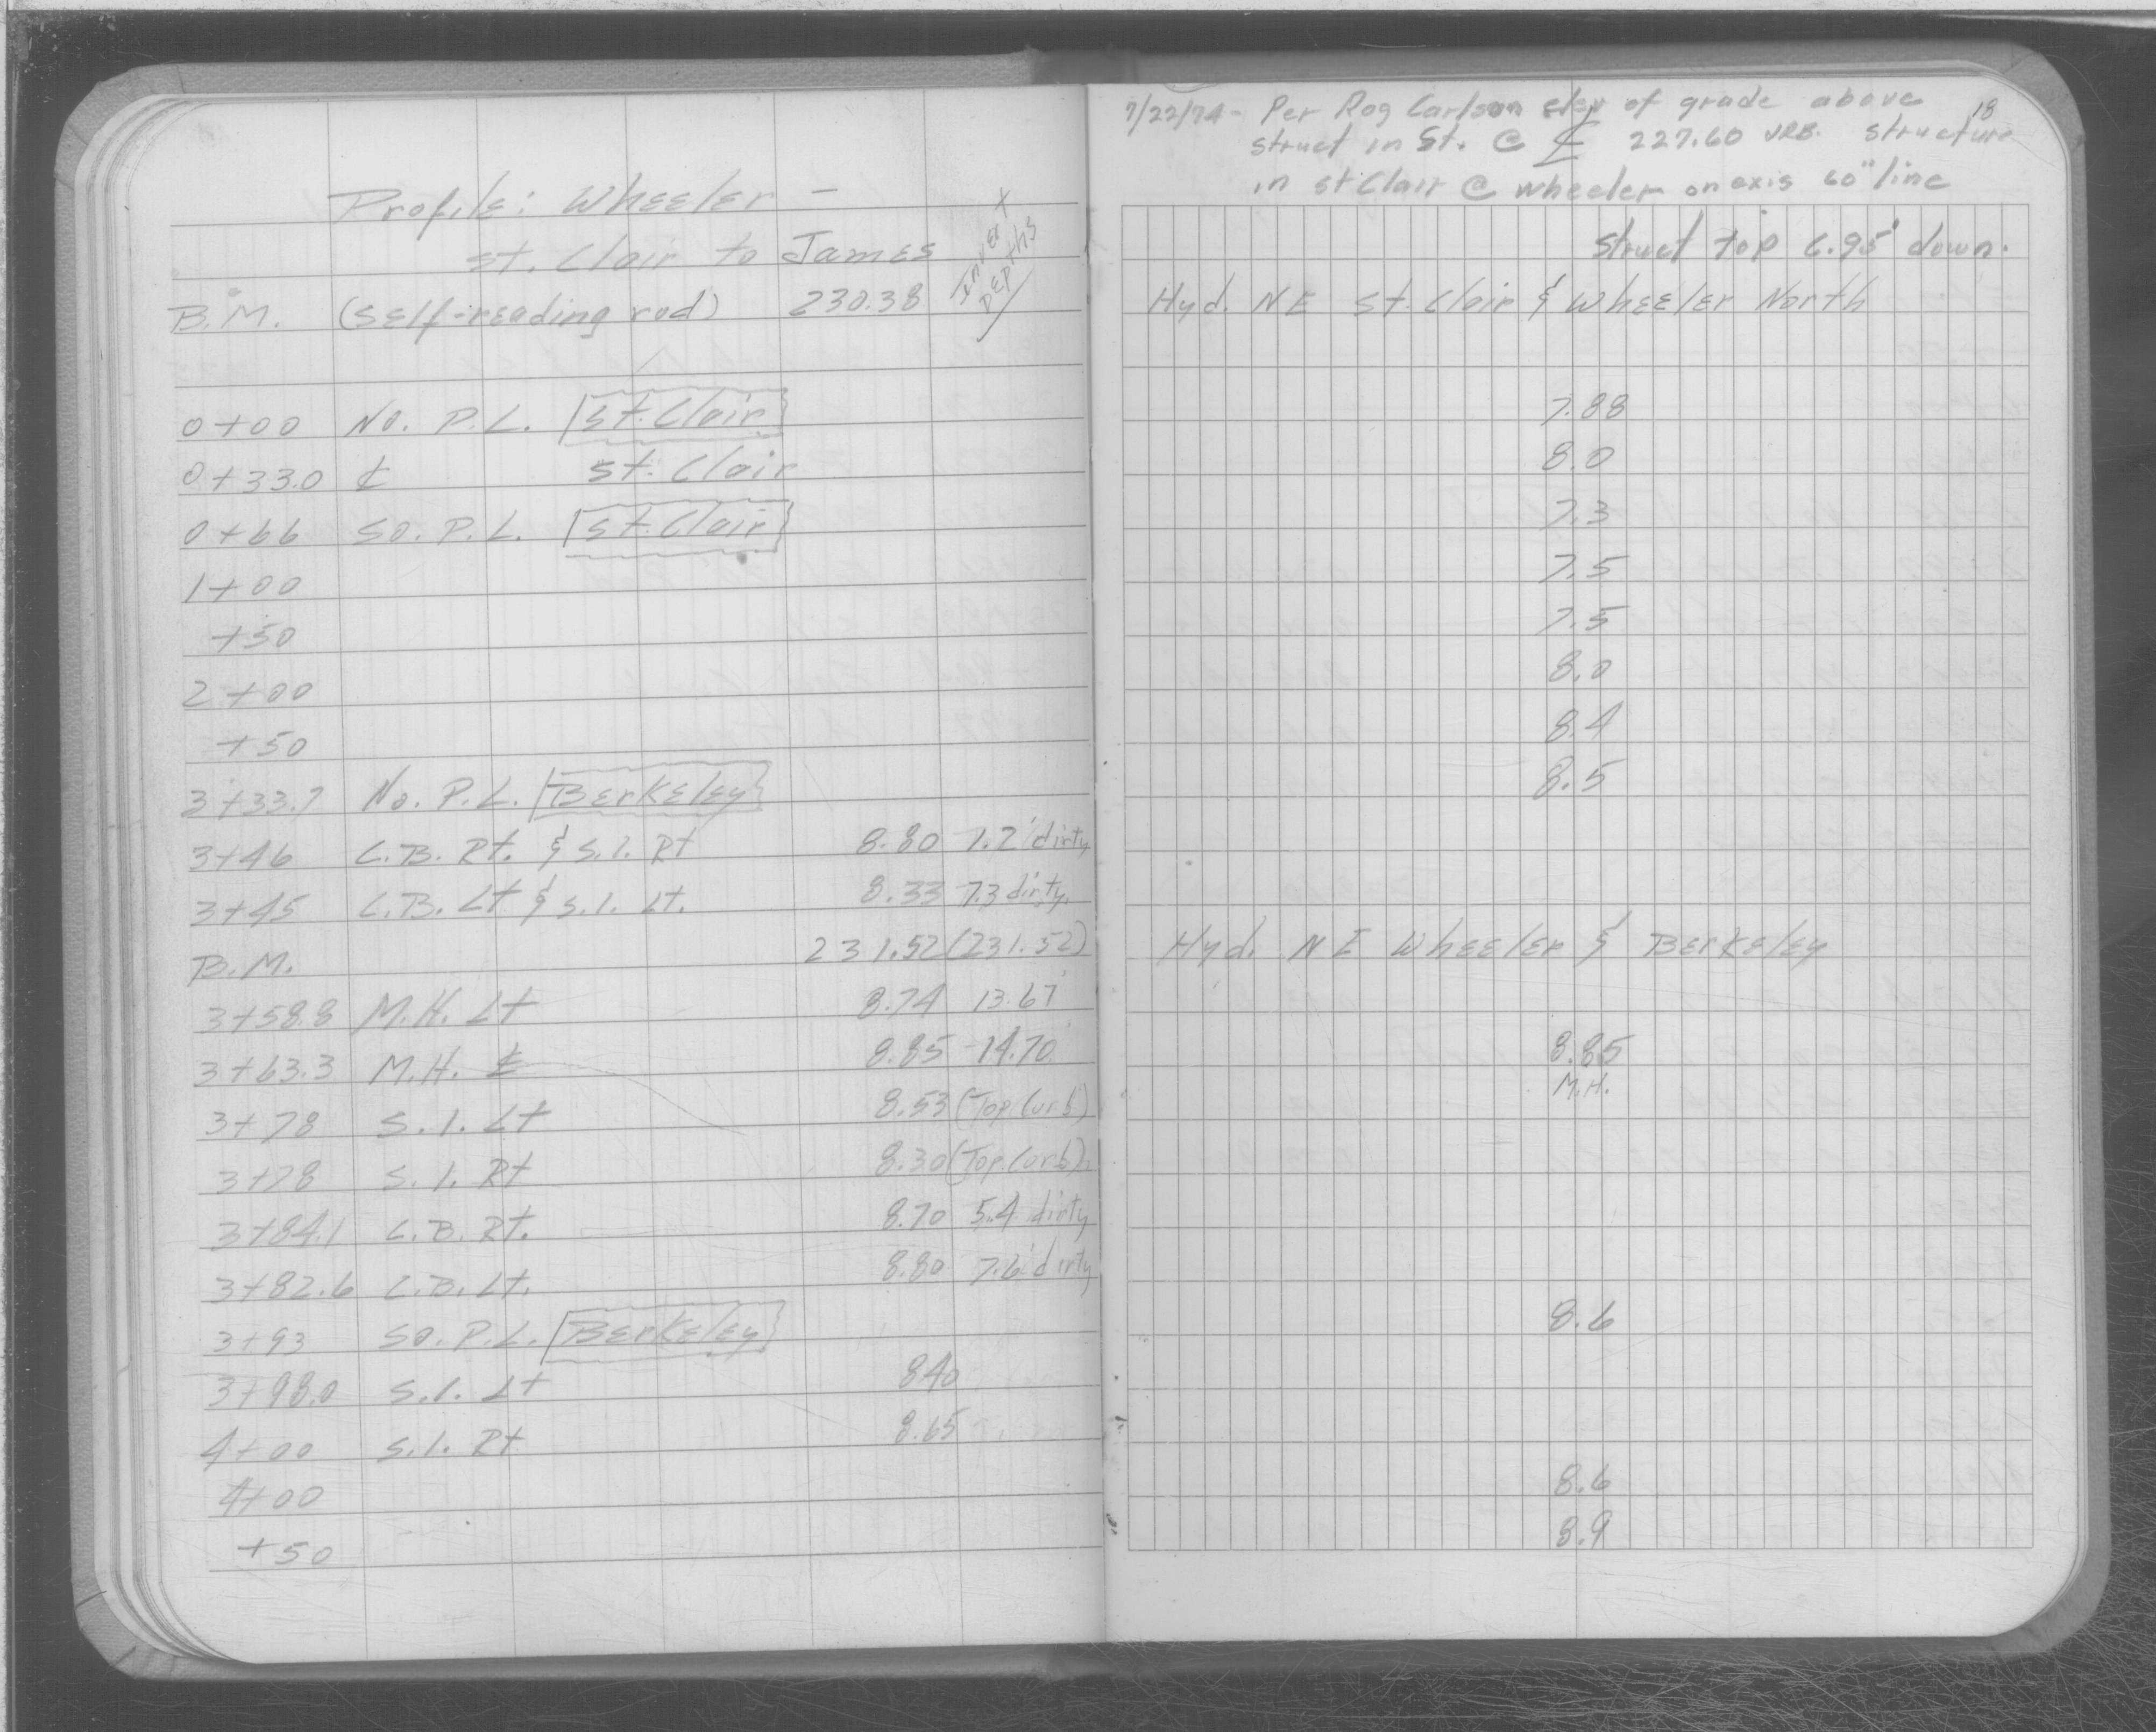 Profile: Wheeler -
St. Clair to James
Invert Depths
B.M. (self-reading rod) 230.38
0+00 No. P.L. St. Clair
0+33.0 ℄ St. Clair
0+66 So. P.L. St. Clair
1+00
+50
2+00
+50
3+33.7 No. P.L. Berkeley
3+46 C.B. Rt. & S.I. Rt 8.80 7.2' dirty
3+45 C.B. Lt & S.I. Lt. 8.33 7.3 dirty.
B.M. 231.52 (231.52)
3+58.8 M.H. Lt 8.74 13.67'
3+63.3 M.H. ℄ 8.85 14.70'
3+78 S.I. Lt 8.53 (Top Curb)
3+78 S.I. Rt 8.30 (Top Curb)
3+84.1 C.B. Rt. 8.70 5.4 dirty
3+82.6 C.B. Lt. 8.80 7.6' dirty
3+93 So. P.L. Berkeley
3+98.0 S.I. Lt 840
4+00 S.I. Rt 8.65
4+00
+50
18
7/22/74 - Per Rog Carlson elev of grade above
struct in St. @ ℄ 227.60 structure
in St Clair @ Wheeler on axis 60" line
struct top 6.95' down.
Hyd. NE St. Clair & Wheeler North
7.88
8.0
7.3
7.5
7.5
8.0
8.4
8.5
Hyd. NE Wheeler & Berkeley
8.85
M.H.
8.6
8.6
8.9